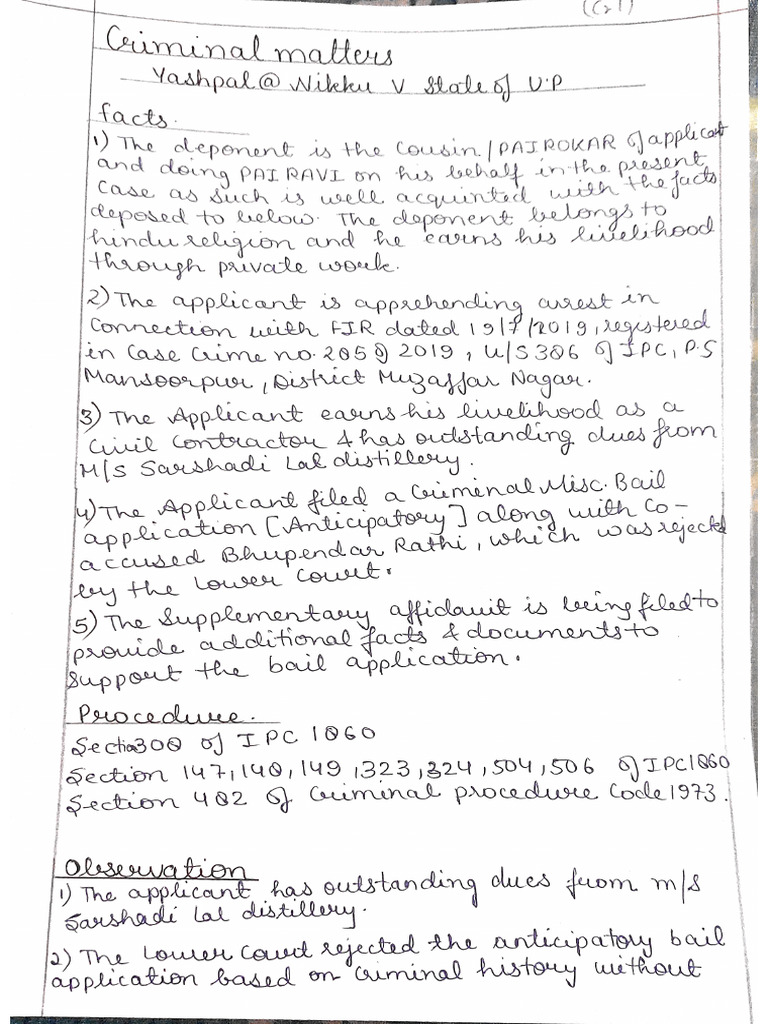 (C21)
Criminal matters
Yashpal @ Nikku V State of U.P
facts.
1) The deponent is the cousin/PAIROKAR of applicant
and doing PAIRAVI on his behalf in the present
case as such is well acquinted with the facts
deposed to below. The deponent belongs to
hindu religion and he earns his livelihood
through private work.
2) The applicant is apprehending arrest in
connection with FIR dated 19/7/2019, registered
in Case Crime no. 285 of 2019, U/S 306 of IPC, P.S
Mansoorpur, District Muzaffar Nagar.
3) The Applicant earns his livelihood as a
civil contractor & has outstanding dues from
M/S Sarshadi Lal distillery.
4) The Applicant filed a Criminal Misc. Bail
application [Anticipatory] along with Co-
accused Bhupendar Rathi, which was rejected
by the lower Court.
5) The Supplementary affidavit is being filed to
provide additional facts & documents to
support the bail application.
Procedure.
Section 308 of IPC 1860
Section 147, 148, 149, 323, 324, 504, 506 of IPC 1860
Section 482 of Criminal procedure Code 1973.
Observation
1) The applicant has outstanding dues from m/s
Sarshadi Lal distillery.
2) The Lower Court rejected the anticipatory bail
application based on criminal history without